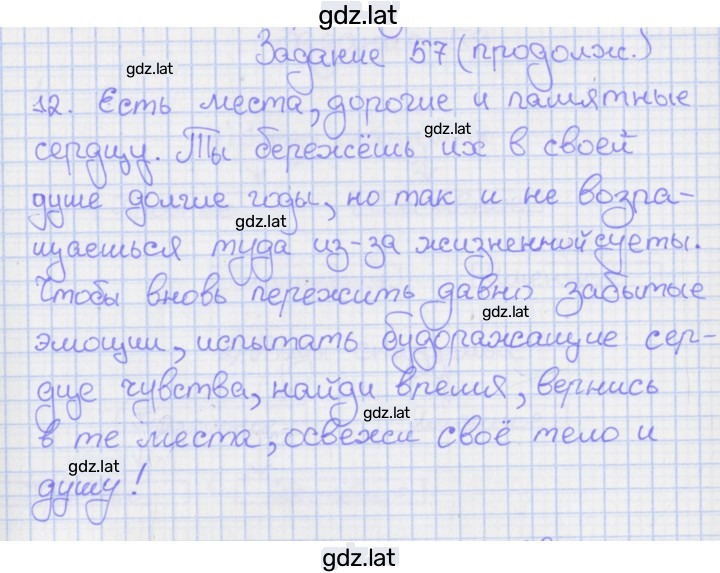 gdz.lat
Задание 57 (продолж.)
gdz.lat
12. Есть места, дорогие и памятные
gdz.lat
сердцу. Ты бережёшь их в своей
душе долгие годы, но так и не возра-
gdz.lat
щаешься туда из-за жизненной суеты.
Чтобы вновь пережить давно забытые
gdz.lat
эмоции, испытать будоражащие сер-
дце чувства, найди время, вернись
gdz.lat
в те места, освежи своё тело и
gdz.lat
душу!
gdz.lat